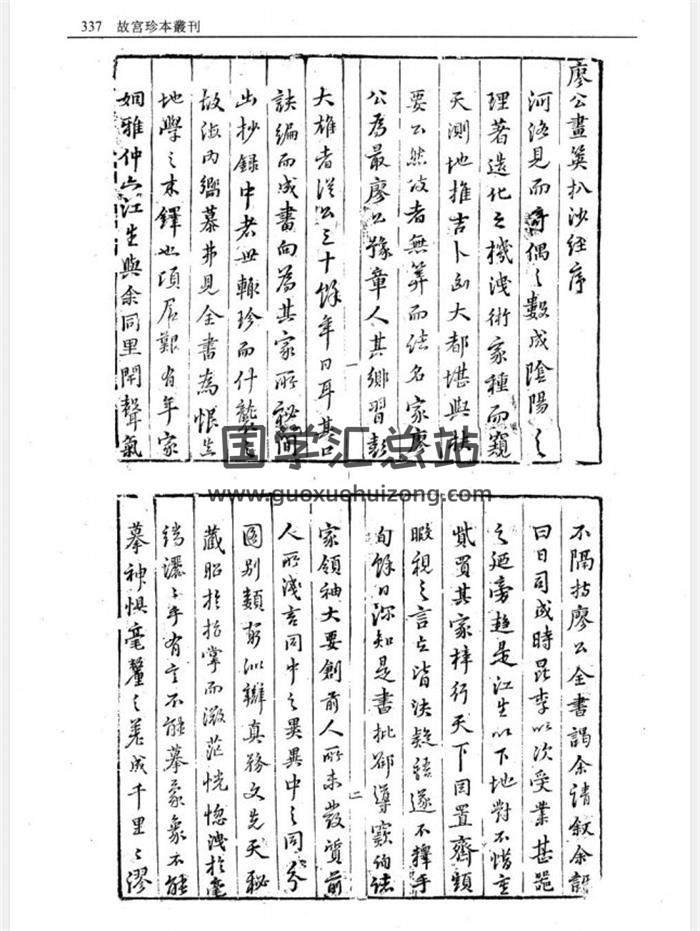 337 故宫珍本叢刊
廖公畫筴扒沙經序
河洛見而竒偶之數成陰陽之
理著造化之機洩術家種而窺
天測地推吉卜凶大都堪輿為
要不然攻者無筭而法名家廖
公為最廖公豫章人其鄉習彭
大雄者從公之十餘年日耳其口
訣編而成書向為其家所秘間
出抄録中老世輒珍而什襲
故海内嚮慕弗見全書為恨
地學之末鐸也頃居艱有年家
姻雅仲六江生與余同里閈聲氣
一
不隔持廖公全書謁余請叙余
曰日司成時昆季以次受業甚
之廼旁趨是江生以下地對不惜重
貲買其家梓行天下因置齋頭
暇視之言言皆決疑語遂不釋手
旬餘日深知是書批郤導窽絢
家領袖大要創前人所未發質前
人所淺言同中之異異中之同分
圖别類窮
真務文先天秘
藏昭於指掌而澂茫恍惚洩於毫
端灑灑乎有言不能摹象象不能
摹神惧毫釐之差成千里之謬
二
国学汇总站
www.guoxuehuizong.com